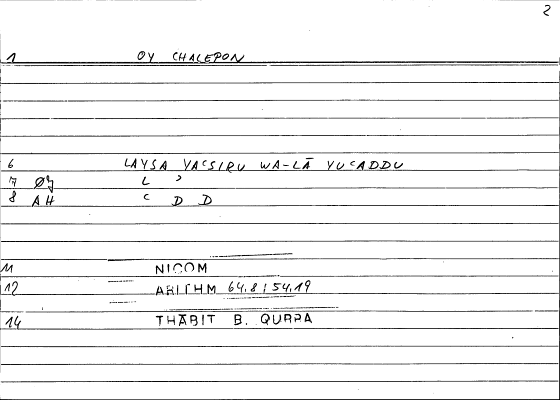 2
1 OY CHALEPON
6 LAYSA YAʿSIRU WA-LĀ YUʿADDU
7 ØY L ʾ
8 AH ʿ D D
11 NICOM
12 ARITHM 64.8 ; 54.19
14 THĀBIT B. QURRA